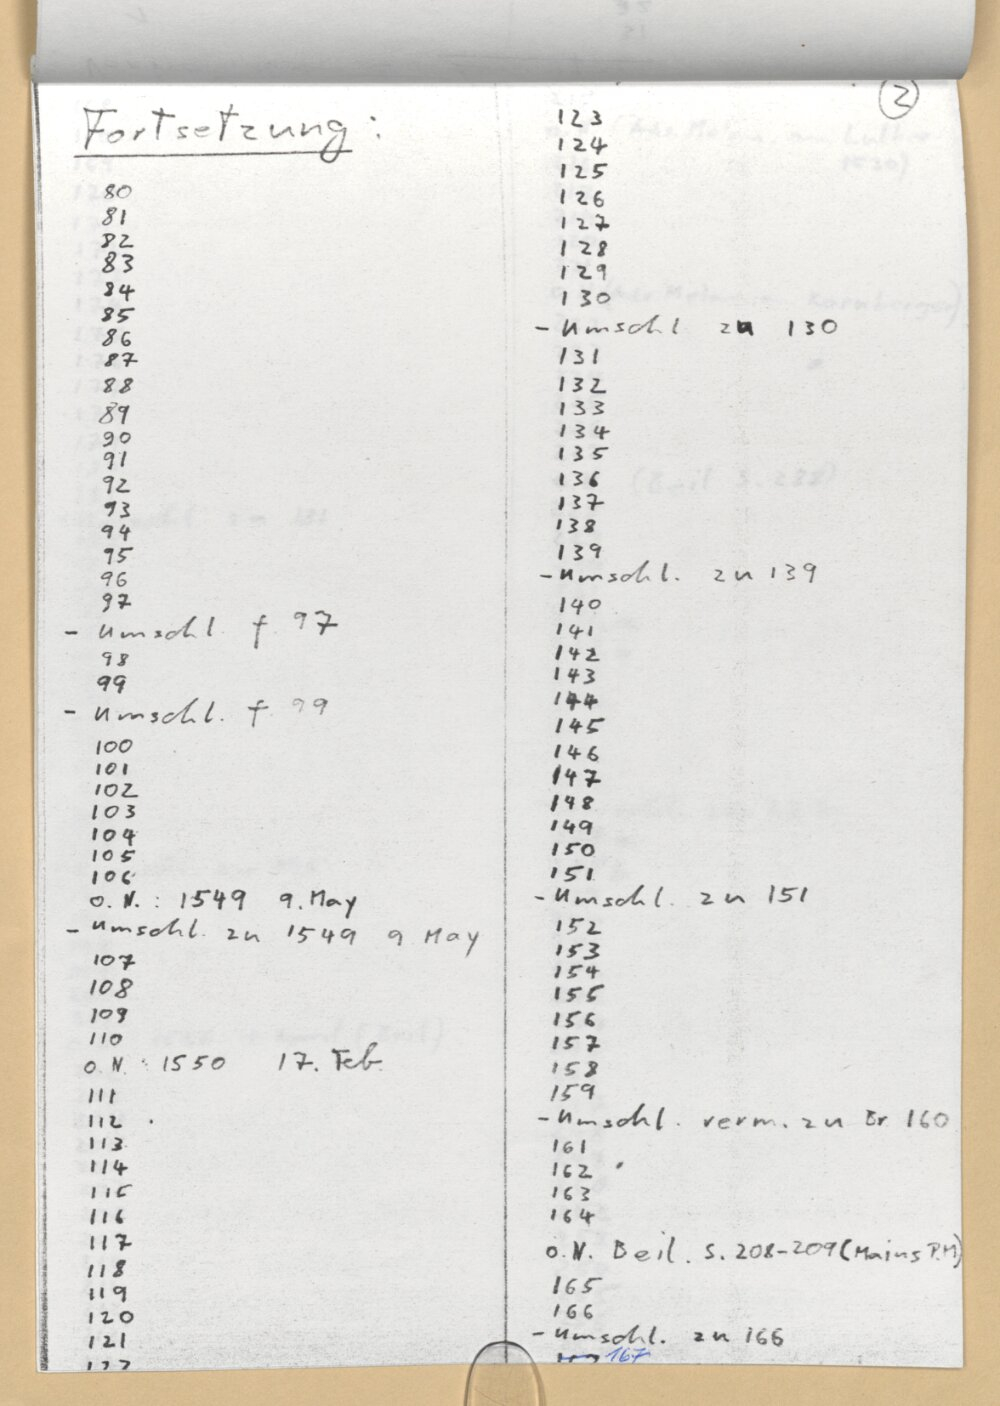 2
Fortsetzung:
80
81
82
83
84
85
86
87
88
89
90
91
92
93
94
95
96
97
- Umschl. f. 97
98
99
- Umschl. f. 99
100
101
102
103
104
105
106
o.N.: 1549 9. May
- Umschl. zu 1549 9 May
107
108
109
110
o.N.: 1550 17. Feb.
111
112
113
114
115
116
117
118
119
120
121
122
123
124
125
126
127
128
129
130
- Umschl zu 130
131
132
133
134
135
136
137
138
139
- Umschl. zu 139
140
141
142
143
144
145
146
147
148
149
150
151
- Umschl. zu 151
152
153
154
155
156
157
158
159
- Umschl. verm. zu Br 160
161
162
163
164
o.N. Beil. S. 208-209 (Mains P.M)
165
166
- Umschl. zu 166
167